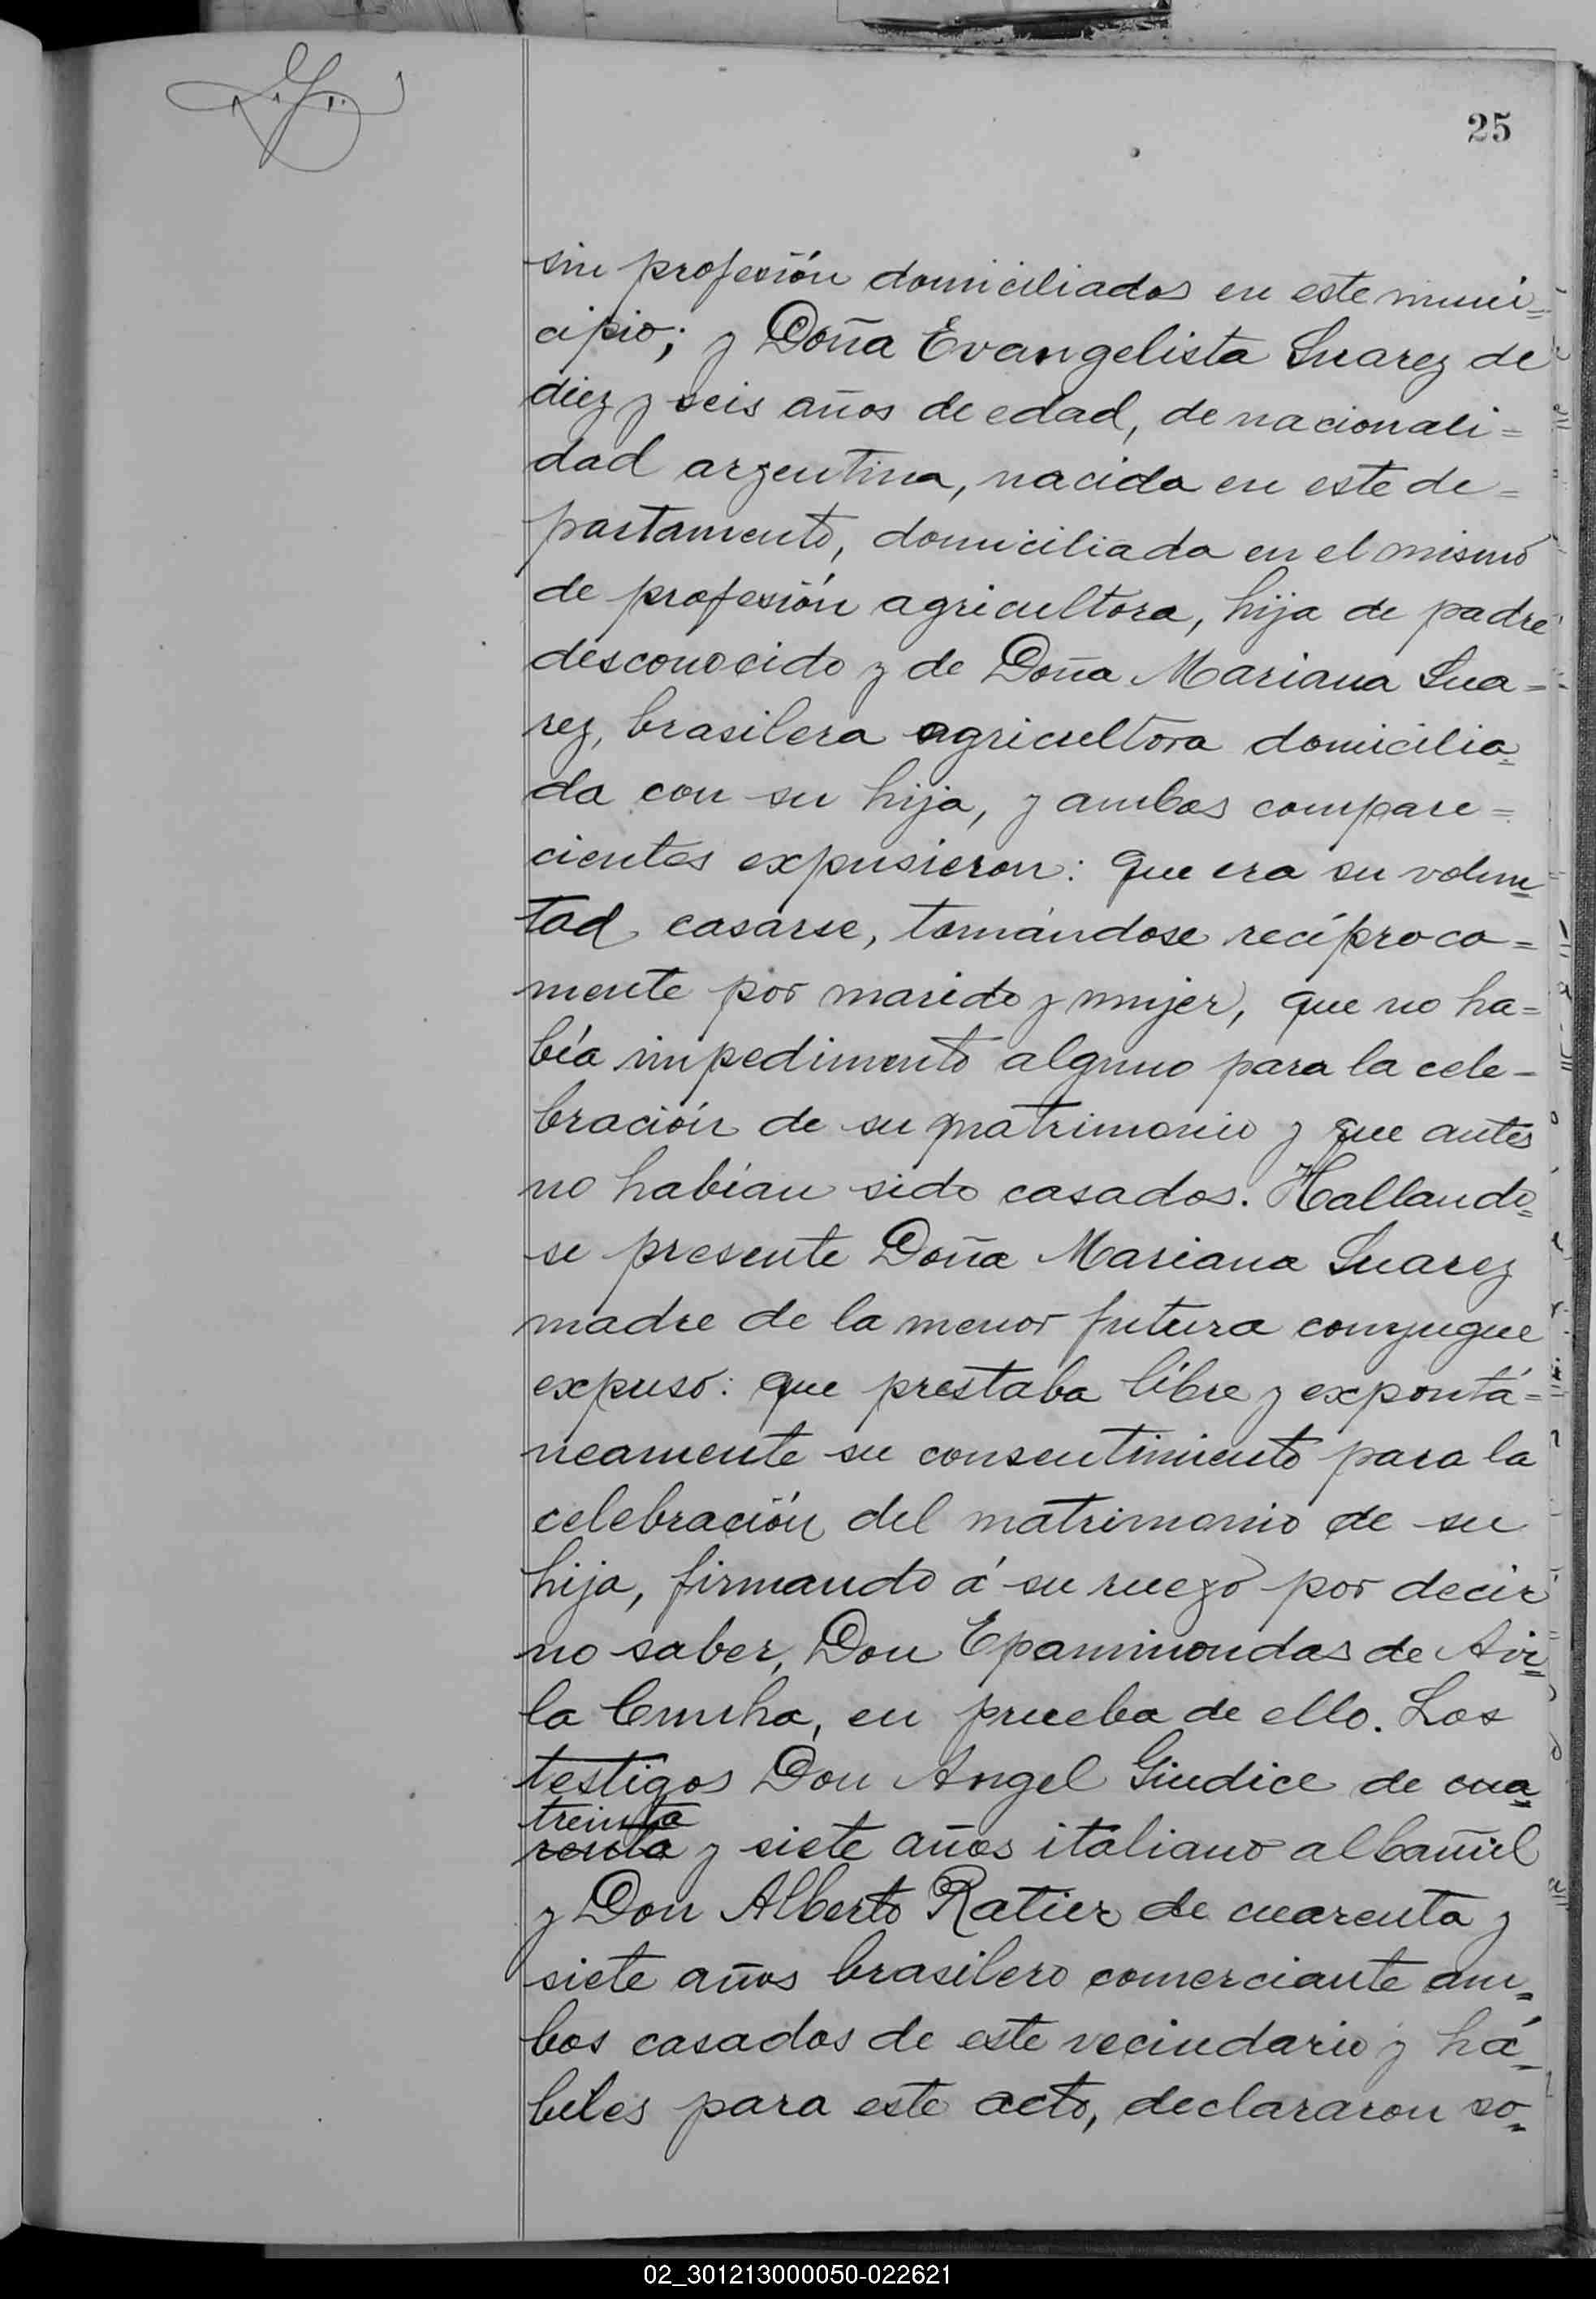 25
sin profesión domiciliados en este muni=
cipio; y Doña Evangelista Suarez de
diez y seis años de edad, de nacionali=
dad argentina, nacida en este de=
partamento, domiciliada en el mismo
de profesión agricultora, hija de padre
desconocido y de Doña Mariana Sua=
rez, brasilera agricultora domicilia=
da con su hija, y ambos compare=
cientes expusieron: que era su volun=
tad casarse, tomándose recíproca=
mente por marido y mujer, que no ha=
bía impedimento alguno para la cele-
bración de su matrimonio y que antes
no habían sido casados. Hallando=
se presente Doña Mariana Suarez
madre de la menor futura conyugue
expuso: que prestaba libre y expontá=
neamente su consentimiento para la
celebración del matrimonio de su
hija, firmando á su ruego por decir
no saber, Don Epaminondas de Avi=
la Cunha, en prueba de ello. Los
testigos Don Angel Giudice de cua=
treinta
renta y siete años italiano albañil
y Don Alberto Ratier de cuarenta y
siete años brasilero comerciante am=
bos casados de este vecindario y há=
biles para este acto, declararon so=
02_301213000050-022621